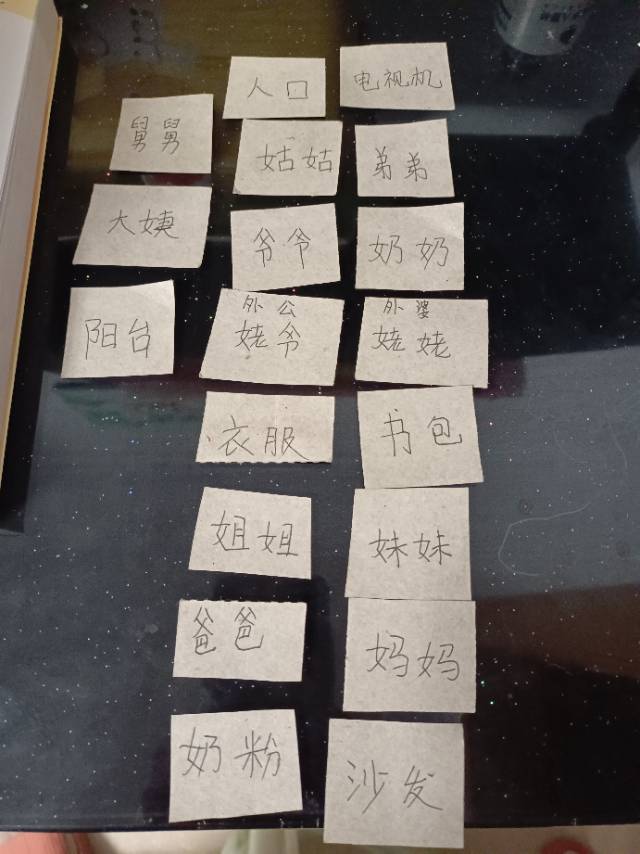 人口
电视机
舅舅
姑姑
弟弟
大姨
爷爷
奶奶
阳台
外公
姥爷
外婆
姥姥
衣服
书包
姐姐
妹妹
爸爸
妈妈
奶粉
沙发